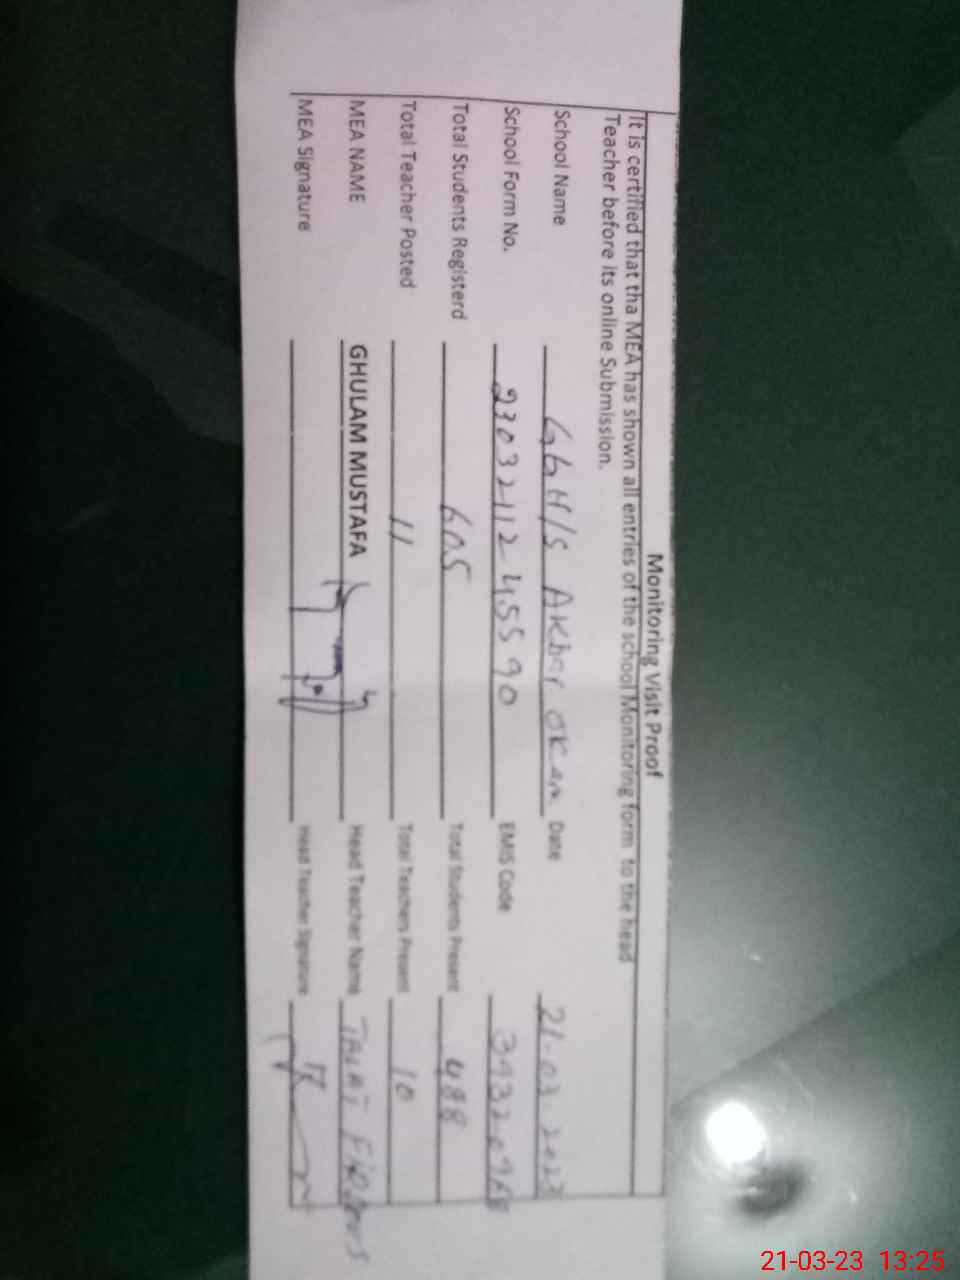 Monitoring Visit Proof
It is certified that tha MEA has shown all entries of the school Monitoring form to the head
Teacher before its online Submission.
School Name GGH/S Akbar OKan Date 21-03-2023
School Form No. 23032112 45590 EMIS Code
Total Students Registerd 605 Total Students Present 488
Total Teacher Posted 11 Total Teachers Present 10
MEA NAME GHULAM MUSTAFA Head Teacher Name TALAT FIRDOUS
MEA Signature Head Teacher Signature
21-03-23 13:25